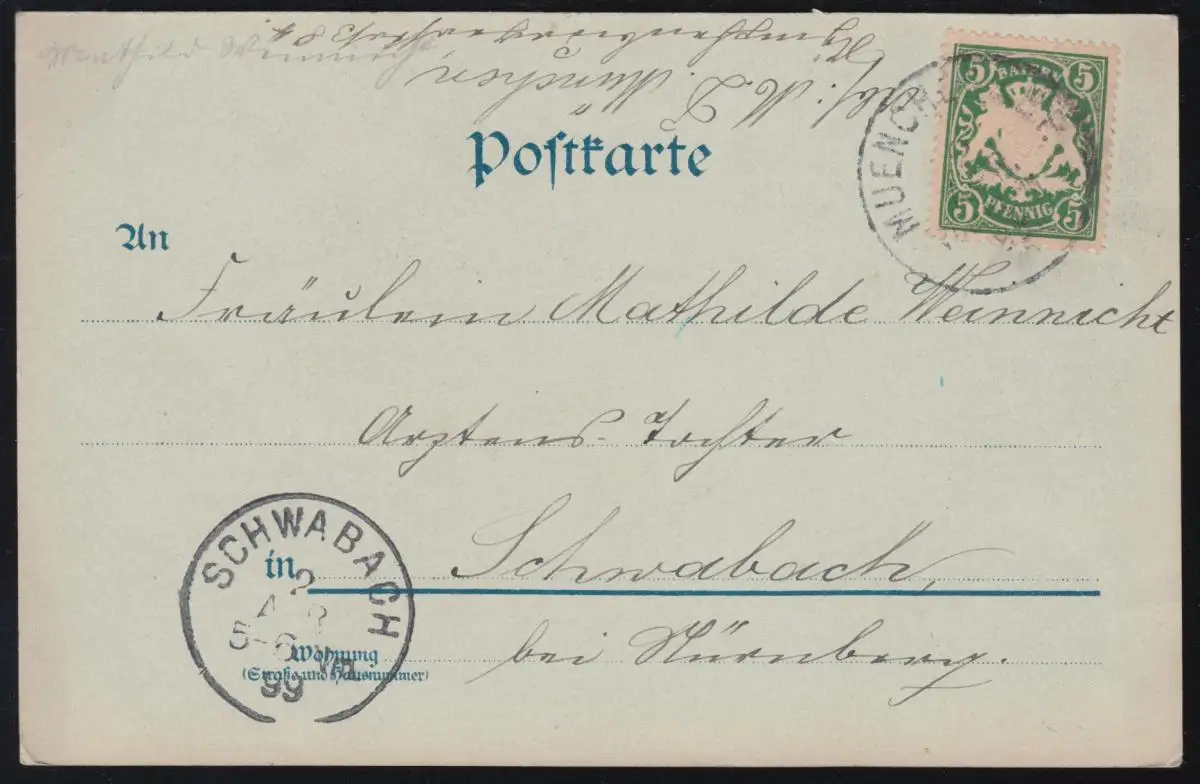 Postkarte
5 BAYERN 5
5 PFENNIG 5
MUENCH
An
Fräulein Mathilde Weinnicht
Arztens-Tochter
in Schwabach,
bei Nürnberg.
Wohnung
(Straße und Hausnummer)
SCHWABACH
2
5-6
99
Abs: M. D.
München